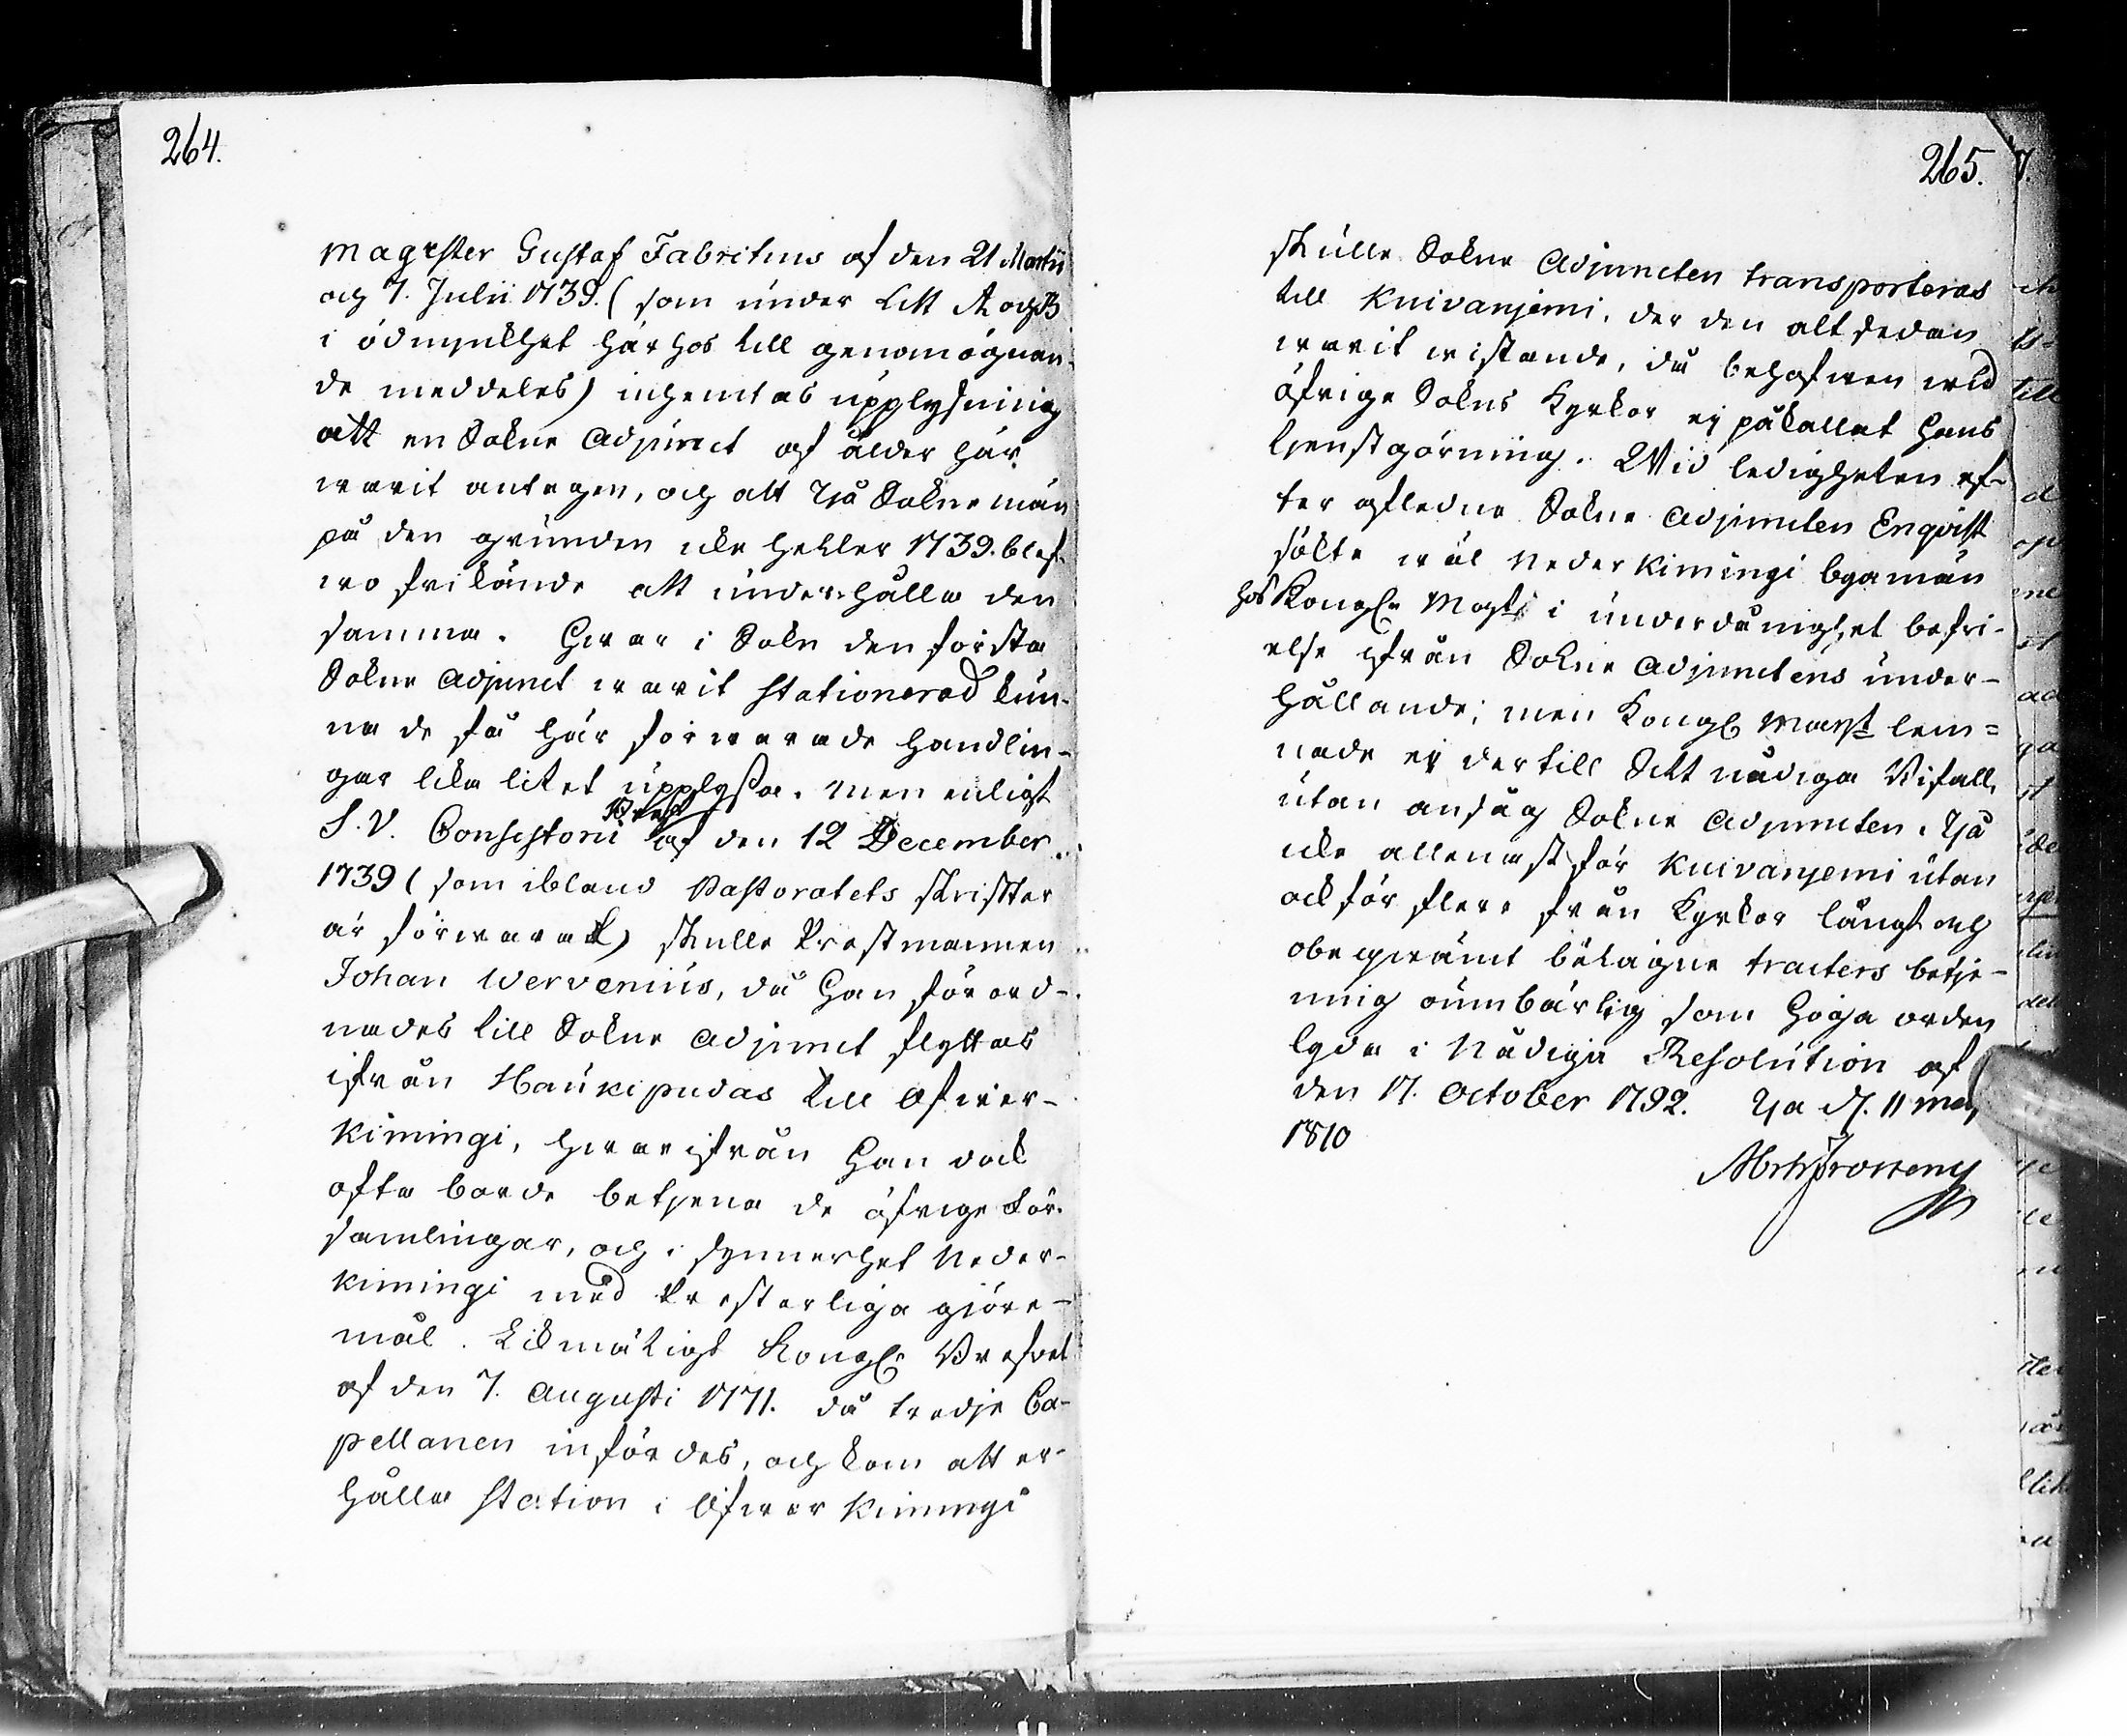 264.
Magister Gustaf Fabritius af den 21 Martii
och 7. Julii 1739. (som under Litt A och B
i ödmjukhet här hos till genomögnan-
de meddeles) inhemtas upplysning
att en Sokne Adjunct af ålder här
warit antagen, och att Ijå Sokne män
på den grunden icke heller 1739. blef-
wo frikände att underhålla den
samma. Hwar i Sokn den första
Sokne Adjunct warit stationerad kun-
na de få här förwarade handlin-
gar lika litet upplysa. Men enligt
S. V. Consistorii Bref af den 12 December
1739 (som ibland Pastoratets skrifter
är förwarad) skulle Prestmannen
Johan Wervenius, då Han förord-
nades till Sokne Adjunct flyttas
ifrån Haukipudas till Öfwer-
Kimingi, hwarifrån Han dock
ofta borde betjena de öfrige för-
samlingar, och i synnerhet Neder-
kimingi med Presterliga giöre-
mål. Likmätigt Kongl. Brefvet
af den 7. Augusti 1771. då tredje Ca-
pellanen infördes, och kom att er-
hålla station i Öfwer Kimingi
265.
skulle Sokne Adjuncten transporteras
till Kuivaniemi, der den alt sedan
warit wistande, då behofwen wid
öfrige Sokne Kyrkor ej påkallat Hans
tjenstgörning. Wid ledigheten ef-
ter afledne Sokne Adjuncten Enqvist
sökte wäl Neder Kimingi byamän
hos Kongl. Majt. i underdånighet befri-
else ifrån Sokne Adjunctens under-
hållande; men Kongl. Majst lem-
nade ej dertill Sitt nådiga Bifall,
utan ansåg Sokne Adjuncten. Ijå
icke allenast för Kuivaniemi utan
ock för flere från Kyrkor långt och
obeqwämt belägne tracters betje-
ning oumbärlig som Höga orden
lyda i Nådiga Resolution af
den 17. October 1792. Ijå d. 11 Maj
1810